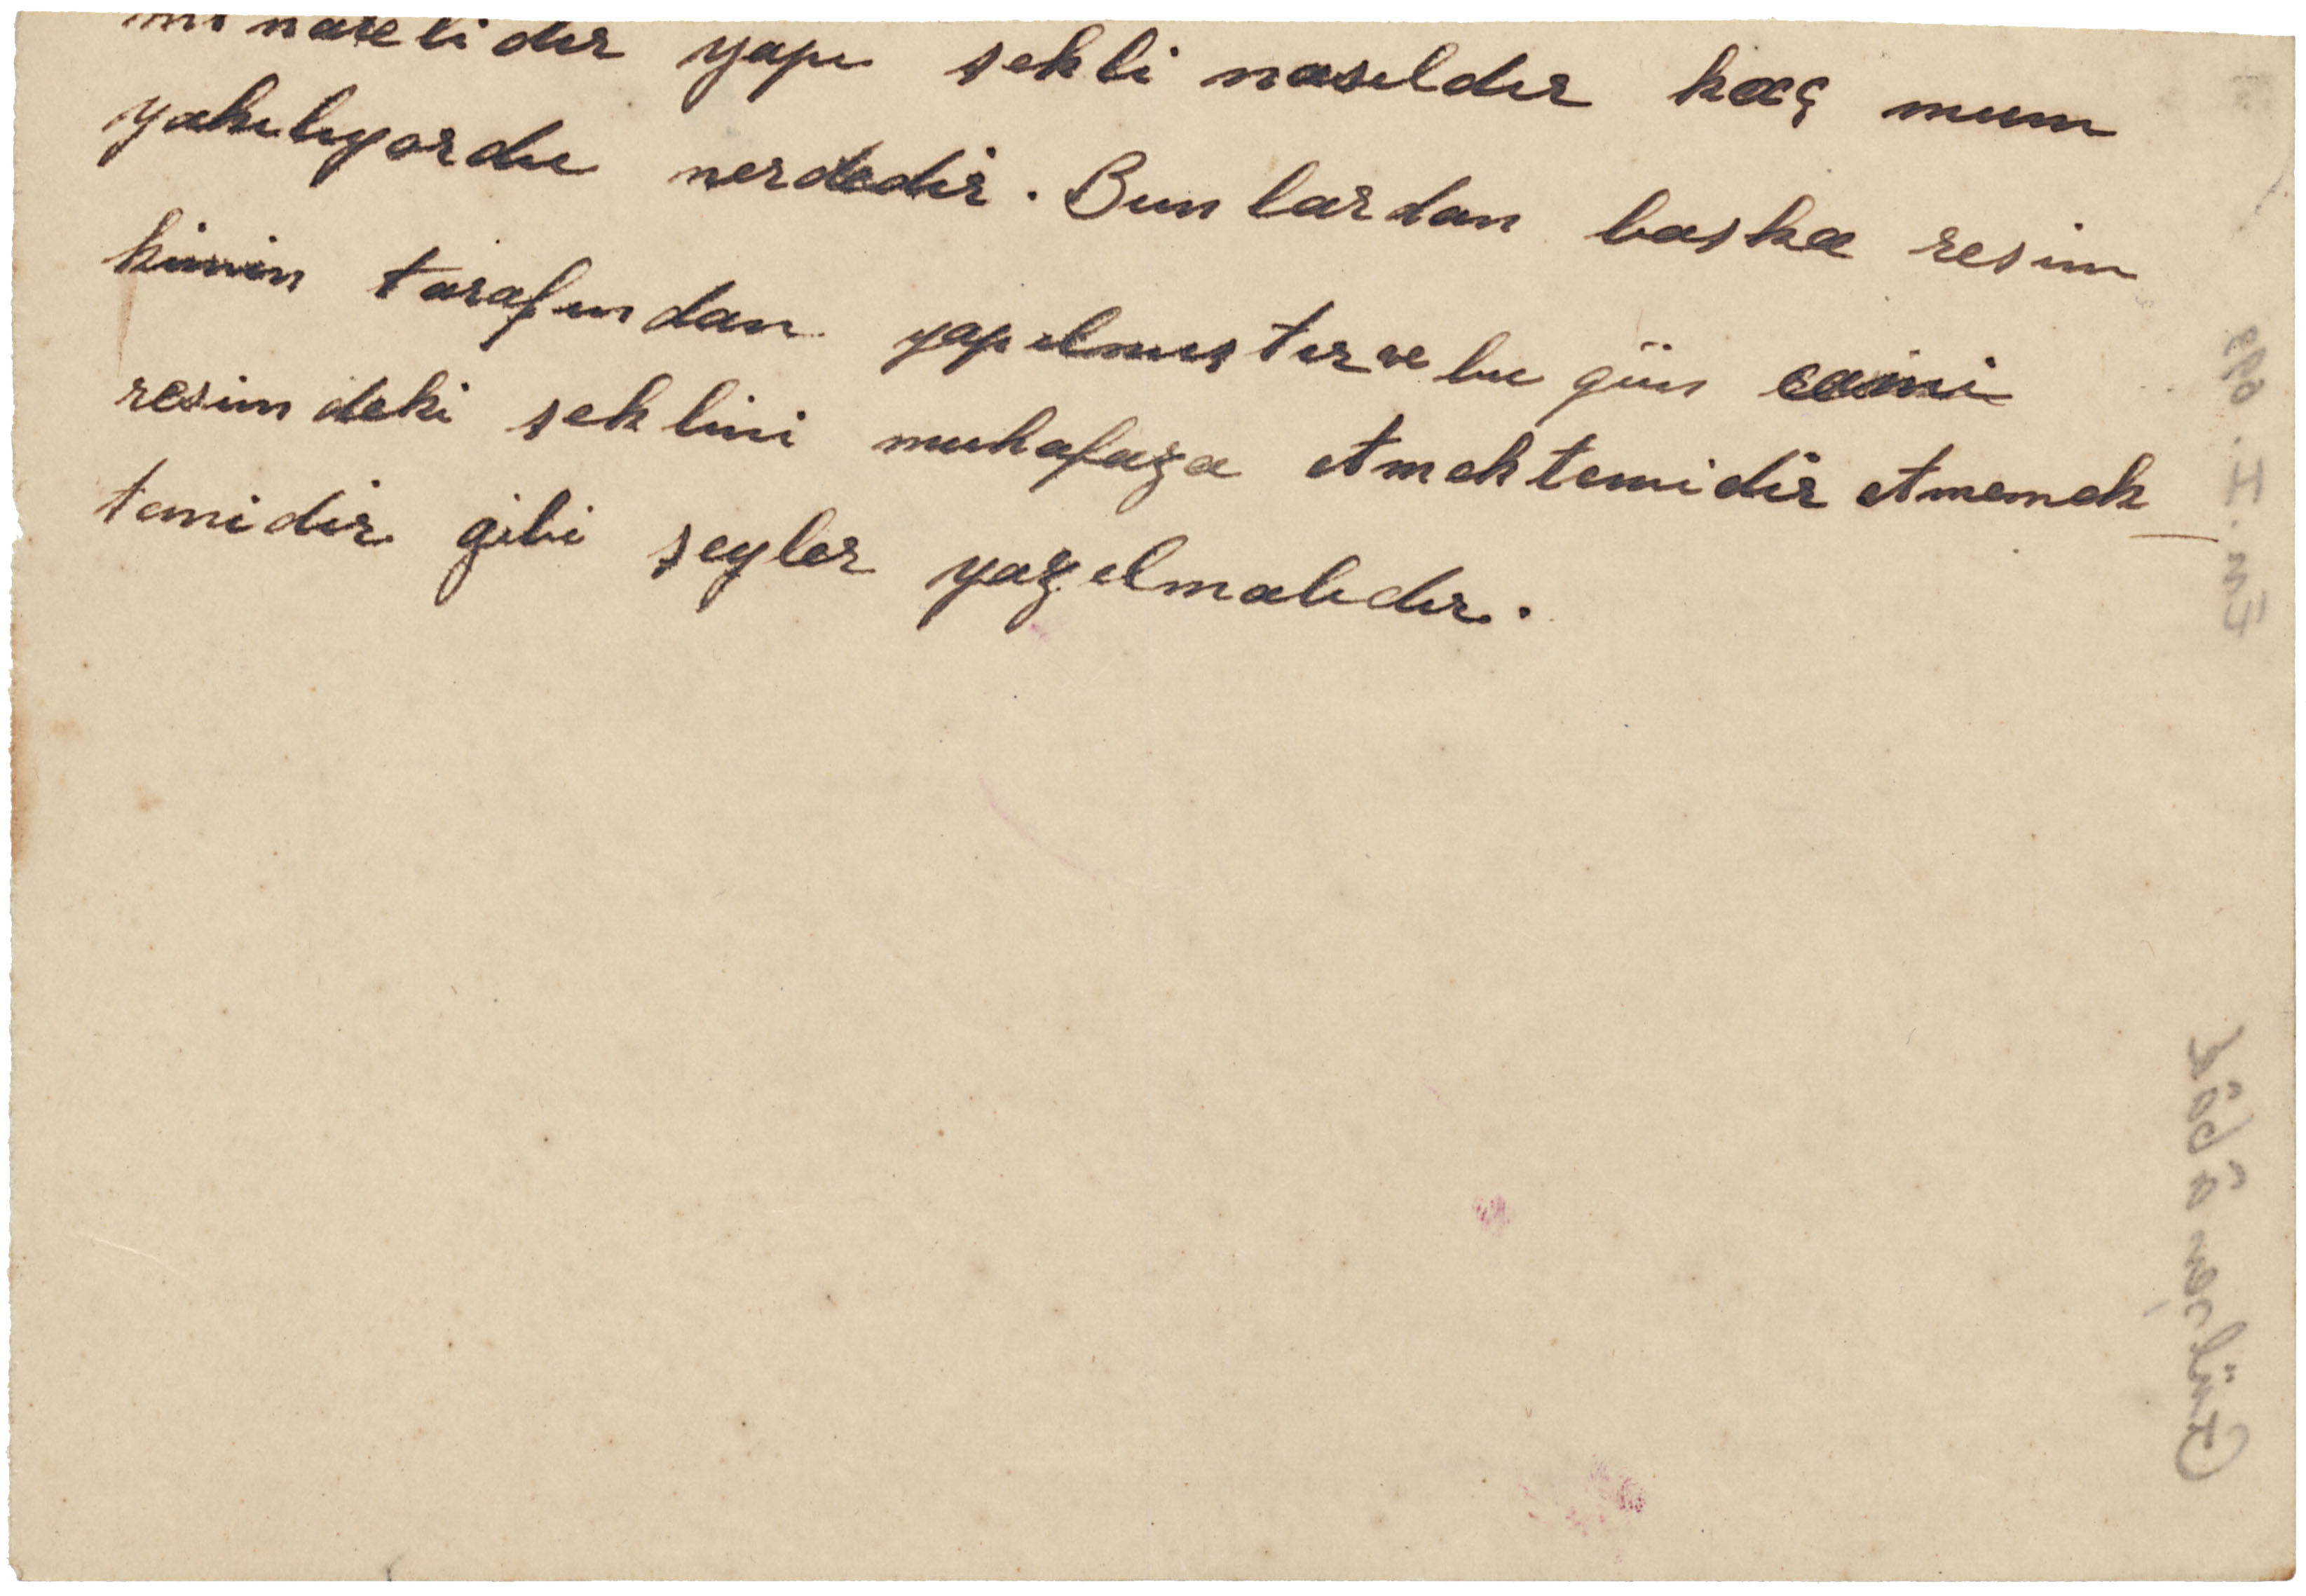 minarelidir yapı şekli nasıldır kaç mum
yakılıyordu nerdedir. Bunlardan başka resim
kimin tarafından yapılmıştır ve bu gün cami
resimdeki şeklini muhafaza etmektemidir etmemek
temidir gibi şeyler yazılmalıdır.
Gülşen Abâd